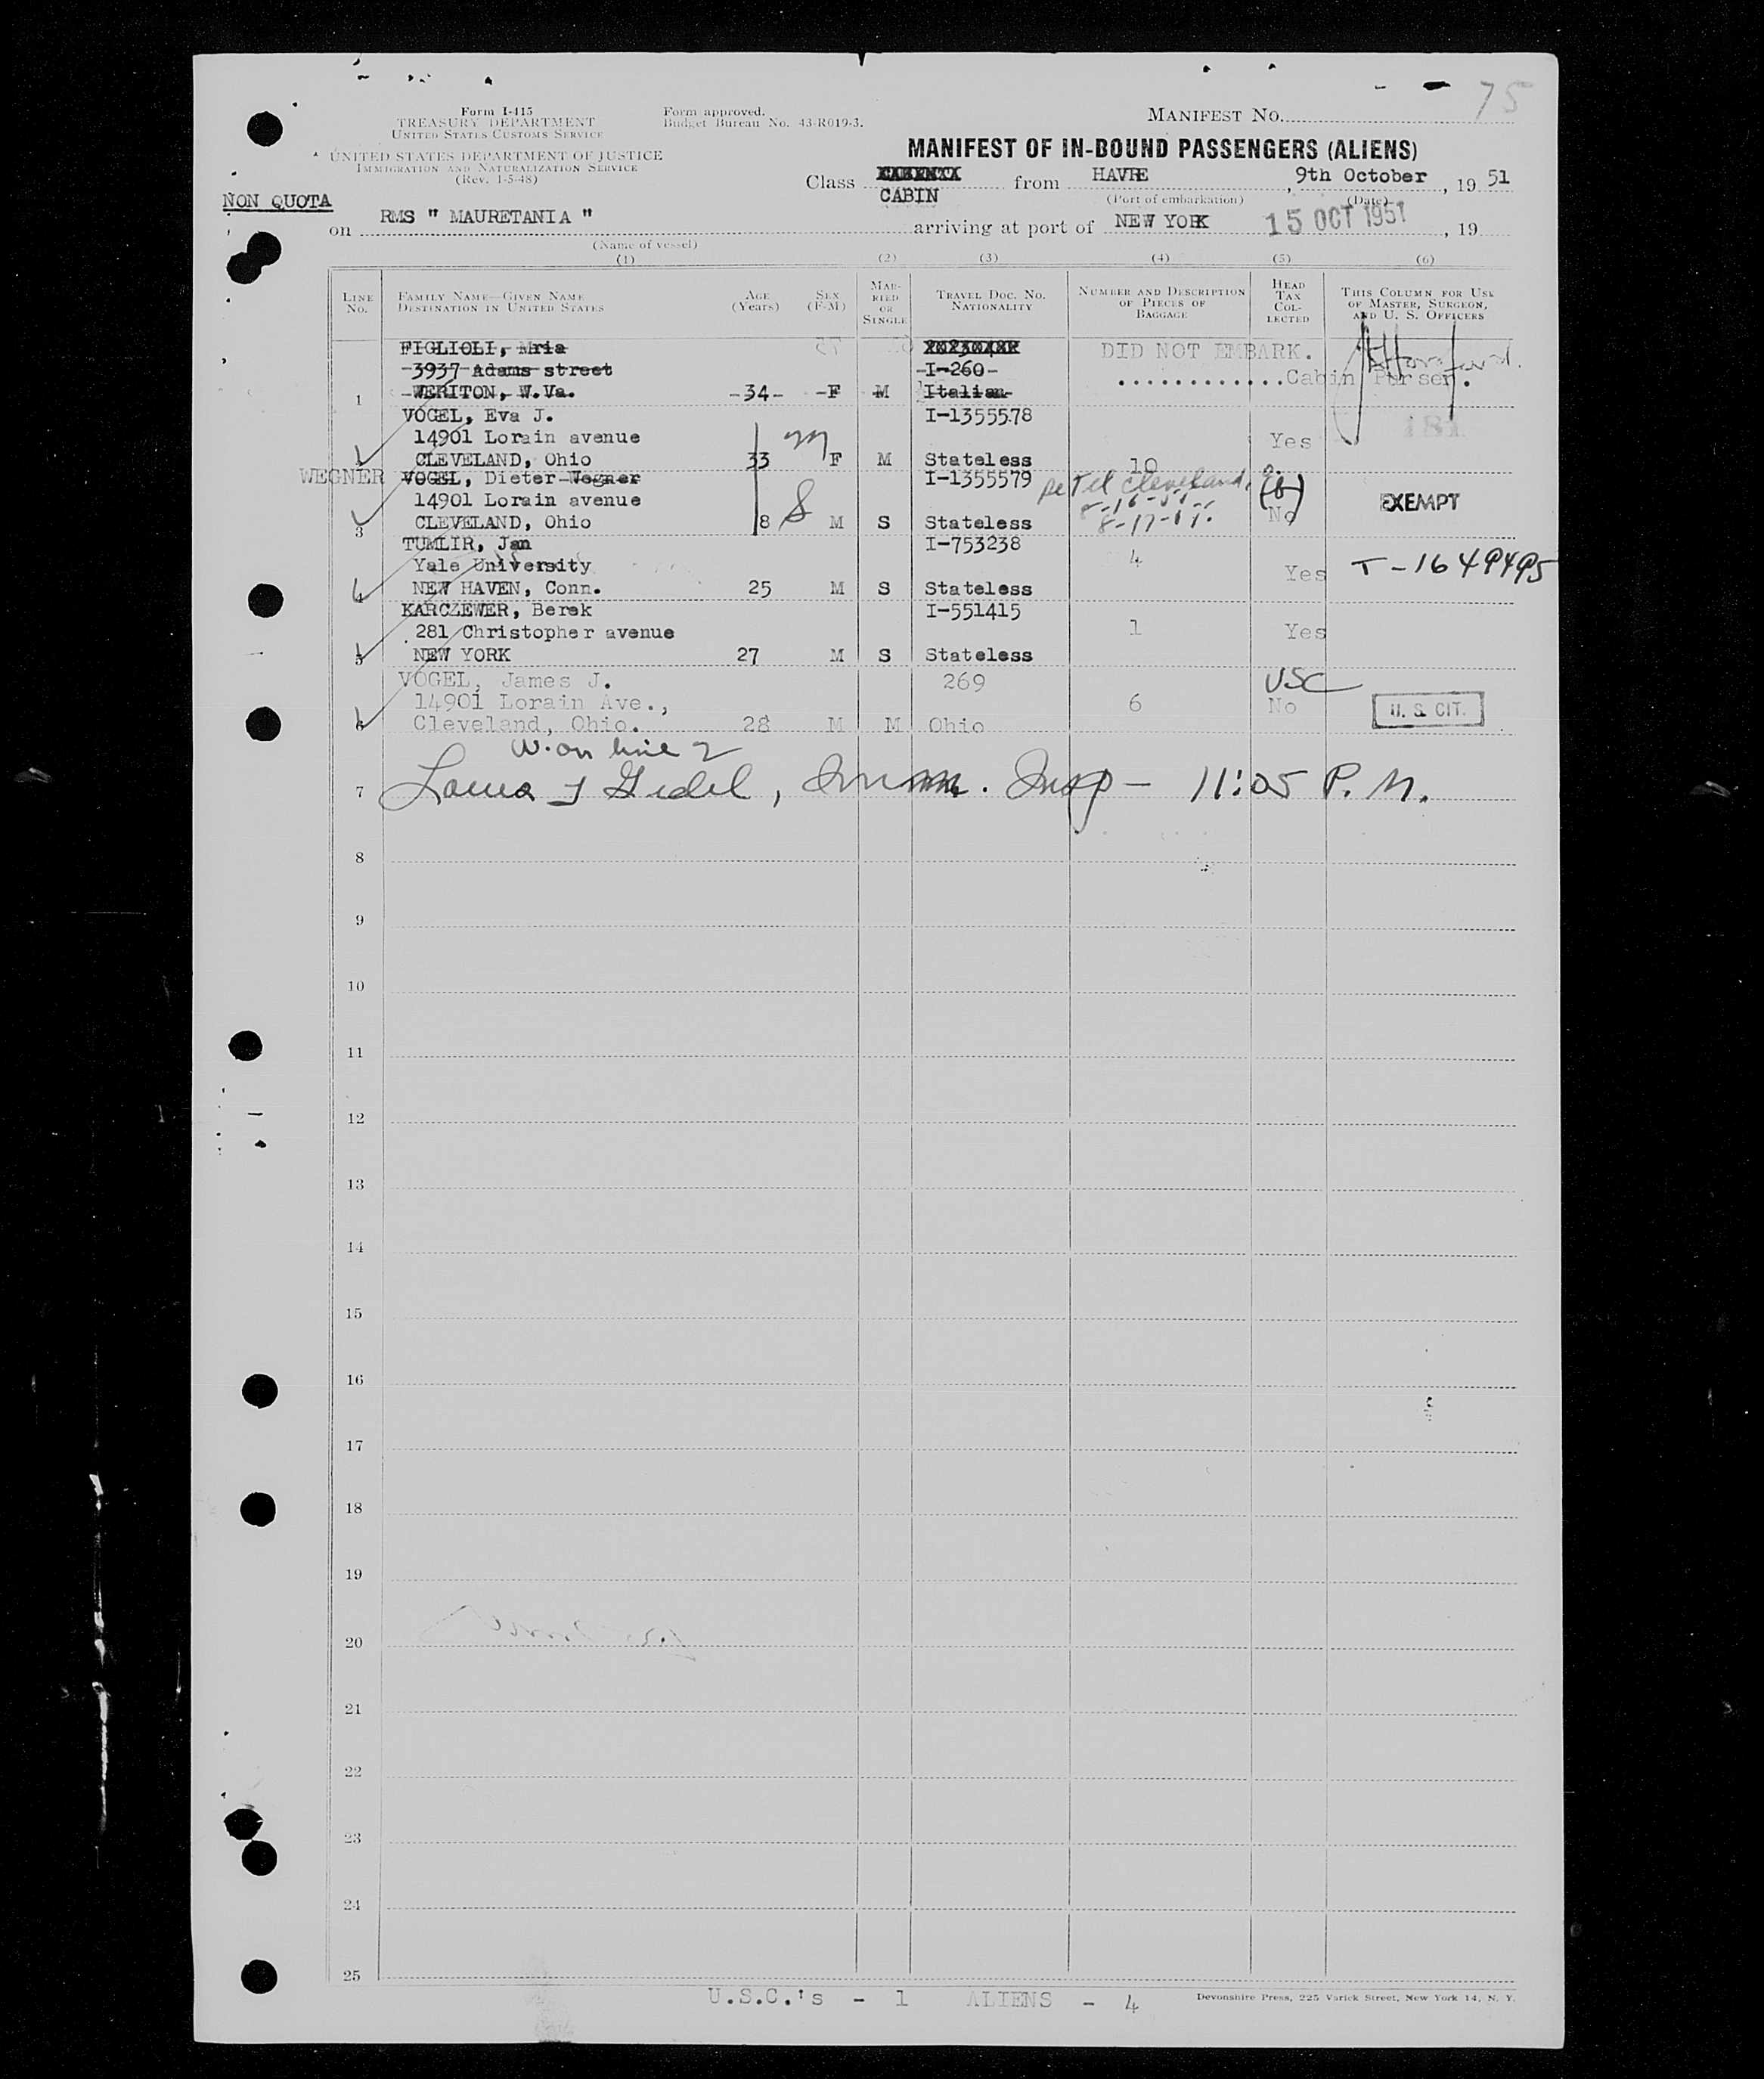 75
Form I-415
TREASURY DEPARTMENT
UNITED STATES CUSTOMS SERVICE
Form approved.
Budget Bureau No. 43-R019-3.
MANIFEST NO.
UNITED STATES DEPARTMENT OF JUSTICE
IMMIGRATION AND NATURALIZATION SERVICE
(Rev. 1-5-48)
MANIFEST OF IN-BOUND PASSENGERS (ALIENS)
Class CABIN from HAVRE, 9th October, 19 51
(Port of embarkation) (Date)
NON QUOTA
on RMS " MAURETANIA " arriving at port of NEW YORK 15 OCT 1951, 19
(Name of vessel)
(1) (2) (3) (4) (5) (6)
LINE NO.
FAMILY NAME—GIVEN NAME
DESTINATION IN UNITED STATES
AGE (Years)
SEX (F-M)
MARRIED OR SINGLE
TRAVEL DOC. NO. NATIONALITY
NUMBER AND DESCRIPTION OF PIECES OF BAGGAGE
HEAD TAX COLLECTED
THIS COLUMN FOR USE OF MASTER, SURGEON, AND U. S. OFFICERS
FIGLIOLI, Mria DID NOT EMBARK.
3937 Adams street I-260 ............Cabin Purser.
1 WERITON, W.Va. 34 F M Italian
VOGEL, Eva J. I-1355578 181
14901 Lorain avenue Yes
2 CLEVELAND, Ohio 33 F M Stateless 10
WEGNER VOGEL, Dieter Wegner I-1355579 Tel Cleveland,
14901 Lorain avenue EXEMPT
3 CLEVELAND, Ohio 8 8 M S Stateless 8-17-51. No
TUMLIR, Jan I-753238
Yale University 4 Yes T-1649495
4 NEW HAVEN, Conn. 25 M S Stateless
KARCZEWER, Berek I-551415
281 Christopher avenue 1 Yes
5 NEW YORK 27 M S Stateless
VOGEL, James J. 269 USC
14901 Lorain Ave., 6 No U. S. CIT.
6 Cleveland, Ohio. 28 M M Ohio
W. on line 2
7 Imm. Insp — 11:05 P. M.
8
9
10
11
12
13
14
15
16
17
18
19
20
21
22
23
24
25
U.S.C.'s - 1 ALIENS - 4
Devonshire Press, 225 Varick Street, New York 14, N. Y.